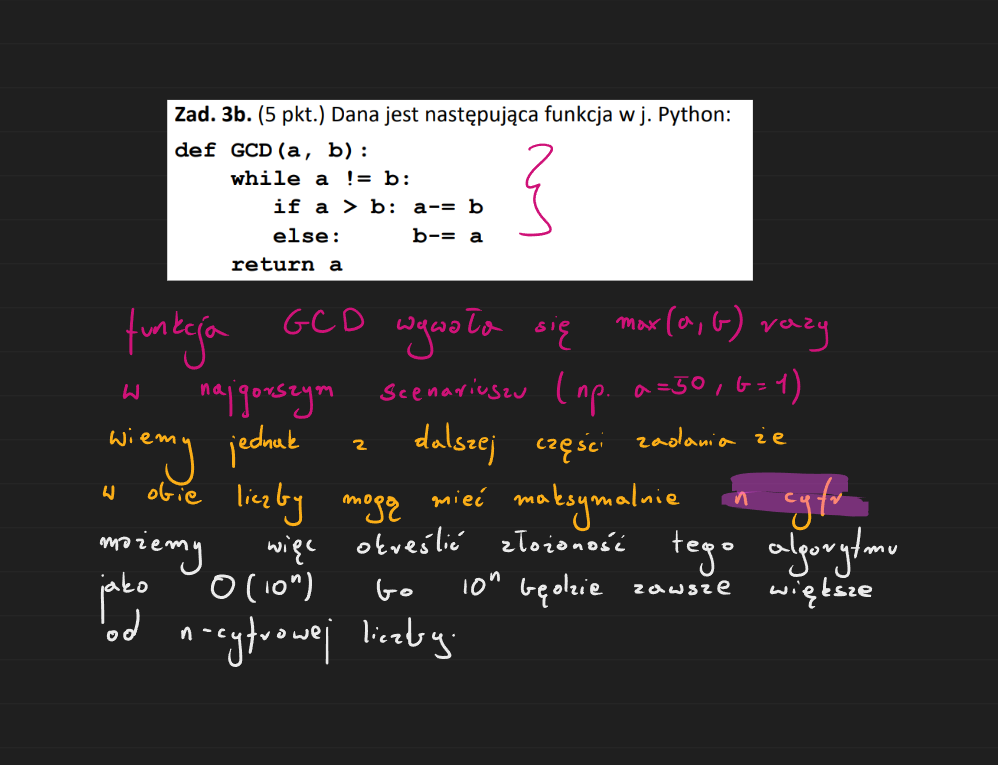 Zad. 3b. (5 pkt.) Dana jest następująca funkcja w j. Python:
def GCD(a, b):
while a != b:
if a > b: a-= b
else: b-= a
return a
funkcja GCD wywoła się max(a,b) razy
w najgorszym scenariuszu (np. a=50, b=1)
wiemy jednak z dalszej części zadania że
w obie liczby mogą mieć maksymalnie n cyfr
możemy więc określić złożoność tego algorytmu
jako O(10ⁿ) bo 10ⁿ będzie zawsze większe
od n-cyfrowej liczby.